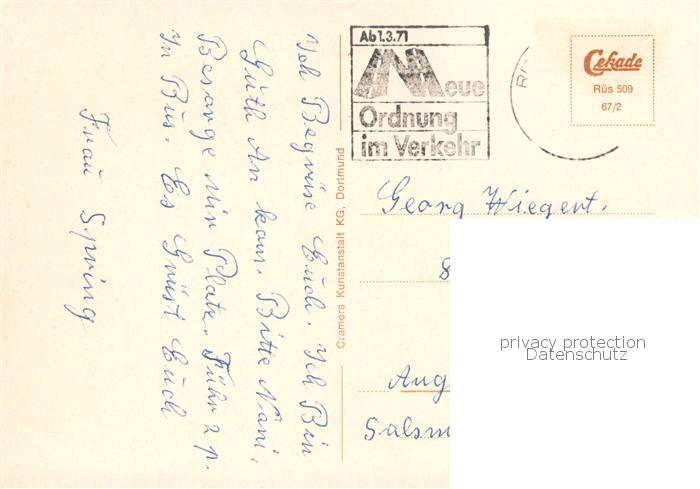 Ab 1.3.71
Neue
Ordnung
im Verkehr
Cekade
Rüs 509
67/2
Ich Begrüse Euch. Ich Bin
Guth An kom. Bitte Nani,
Besorge mir Platz. Führ 2 p.
In Bus. Es Grüst Euch
Frau Spring
Cramers Kunstanstalt KG, Dortmund
Georg Wiegert.
8
Aug
Salsm
privacy protection
Datenschutz